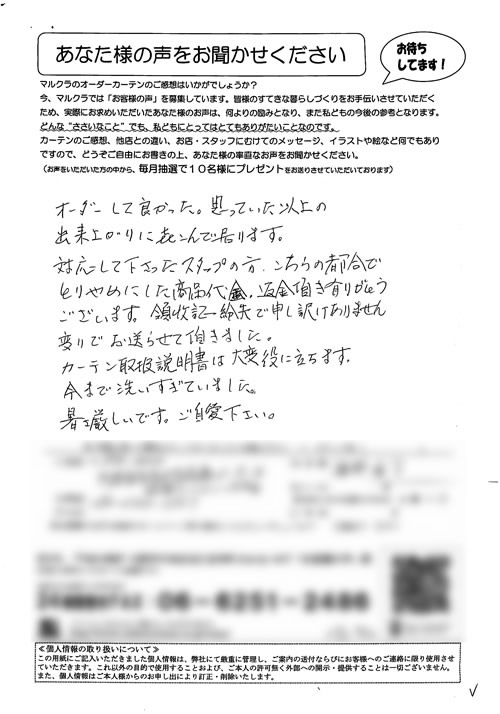 あなた様の声をお聞かせください
お待ち
してます!
マルクラのオーダーカーテンのご感想はいかがでしょうか?
今、マルクラでは「お客様の声」を募集しています。皆様のすてきな暮らしづくりをお手伝いさせていただく
ため、実際にお求めいただいたあなた様のお声は、何よりの励みとなり、また私どもの今後の参考となります。
どんな“ささいなこと”でも、私どもにとってはとてもありがたいことなのです。
カーテンのご感想、他店との違い、お店・スタッフにむけてのメッセージ、イラストや絵など何でもあり
ですので、どうぞご自由にお書きの上、あなた様の率直なお声をお聞かせください。
(お声をいただいた方の中から、毎月抽選で10名様にプレゼントをお送りさせていただいております)
オーダーして良かった。思っていた以上の
出来上がりに喜こんで居ります。
対応して下さったスタッフの方、こちらの都合で
とりやめにした商品代金、返金頂き有りがとう
ございます。領収証紛失で申し訳けありません
変りでお送らせて頂きました。
カーテン取扱説明書は大変役に立ちます。
今まで洗いすぎていました。
暑さ厳しいです。ご自愛下さい。
06-6251-2486
≪個人情報の取り扱いについて≫
この用紙にご記入いただきました個人情報は、弊社にて厳重に管理し、ご案内の送付ならびにお客様へのご連絡に限り使用させ
ていただきます。これ以外の目的で使用することおよび、ご本人の許可無く外部への開示・提供することは一切ございません。
また、個人情報はご本人様からのお申し出により訂正・削除いたします。